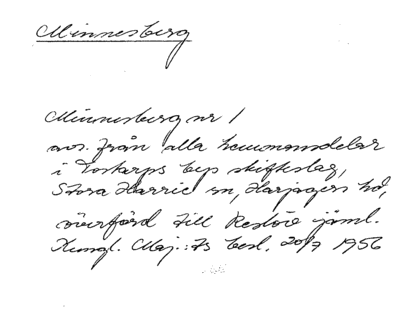 Minnesberg
Minnesberg nr 1
avs. från alla hemmansdelar
i Tostarps bys skifteslag,
Stora Harrie sn, Harjagers hd,
överförd till Reslöv jäml.
Kungl. Maj:ts besl. 20/7 1956